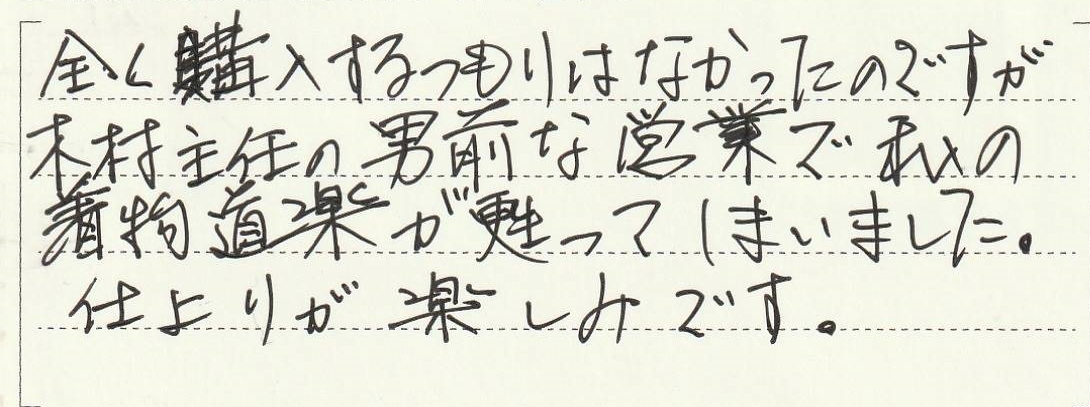 全く購入するつもりはなかったのですが
木村主任の男前な営業で私の
着物道楽が甦ってしまいました。
仕上りが楽しみです。